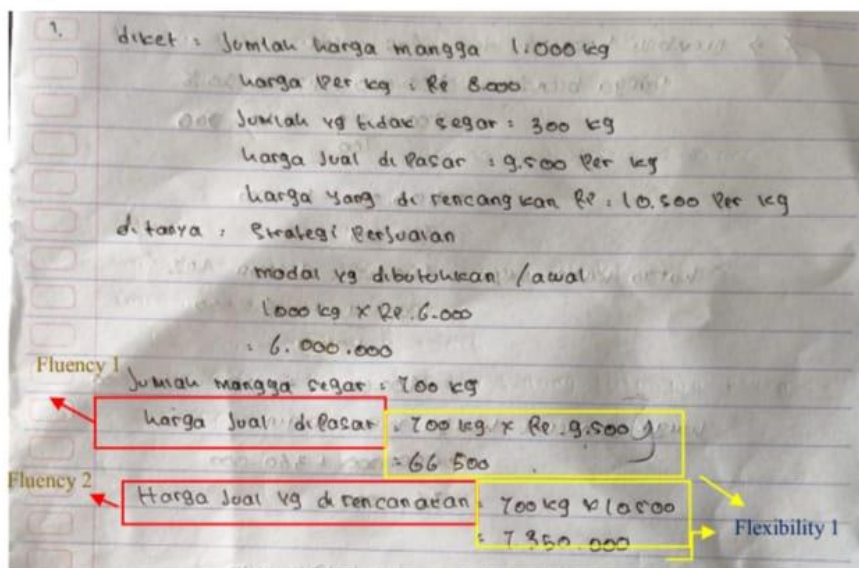 1.
diket : Jumlah harga mangga 1.000 kg
harga per kg : Rp 8.000
Jumlah yg tidak segar : 300 kg
harga jual di pasar : 9.500 per kg
harga yang di rencangkan Rp. 10.500 per kg
ditanya : Strategi Perjualan
modal yg dibutuhkan / awal
1000 kg x Rp. 6.000
: 6.000.000
Fluency 1
Jumlah mangga segar : 700 kg
harga Jual di pasar : 700 kg x Rp. 9.500
= 66 500
Fluency 2
Harga Jual yg di rencanakan : 700 kg x 10.500
= 7.350.000
Flexibility 1